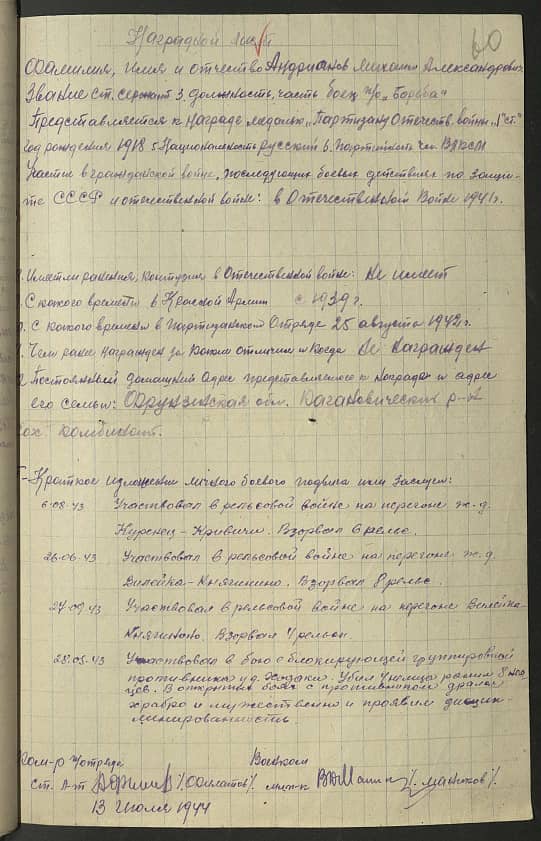 60
Наградной лист
Фамилия, имя и отчество Андрианов Михаил Александрович
Звание ст. сержант 3. должность, часть боец п/о „Борьба"
Представляется к награде медалью „Партизану Отечеств. войны" I ст."
год рождения 1918 5 Национальность русский 6. партийность чл. ВЛКСМ
Участие в гражданской войне, последующих боевых действиях по защи-
те СССР и отечественной войне: в Отечественной Войне 1941 г.
Имеет ли ранения, контузия в Отечественной войне: Не имеет
С какого времени в Красной Армии с 1939 г.
С какого времени в партизанском отряде 25 августа 1942 г.
Чем ранее награжден за какие отличия и когда Не награжден
Постоянный домашний адрес представляемого к награде и адрес
его семьи: Фрунзенская обл. Кагановический р-н
комбинат.
Краткое изложение личного боевого подвига или заслуги:
6.08.43 Участвовал в рельсовой войне на перегоне ж.д.
Куренец - Кривичи. Взорвал 6 рельс.
26.06.43 Участвовал в рельсовой войне на перегоне ж.д.
Вилейка - Княгинино. Взорвал 8 рельс.
Участвовал в рельсовой войне на перегоне Вилейка-
Княгинино. Взорвал 4 рельсы.
28.05.43 Участвовал в бою с блокирующей группировкой
противника у д. Ходаки. Убил 4 немца ранил 8 нем-
цев. В открытых боях с противником дрался
храбро и мужественно и проявил дисцип-
линированность.
Ком-р отряда Военком
ст. л-т /Филатов/ мл. п-к /Маников/
13 июля 1944